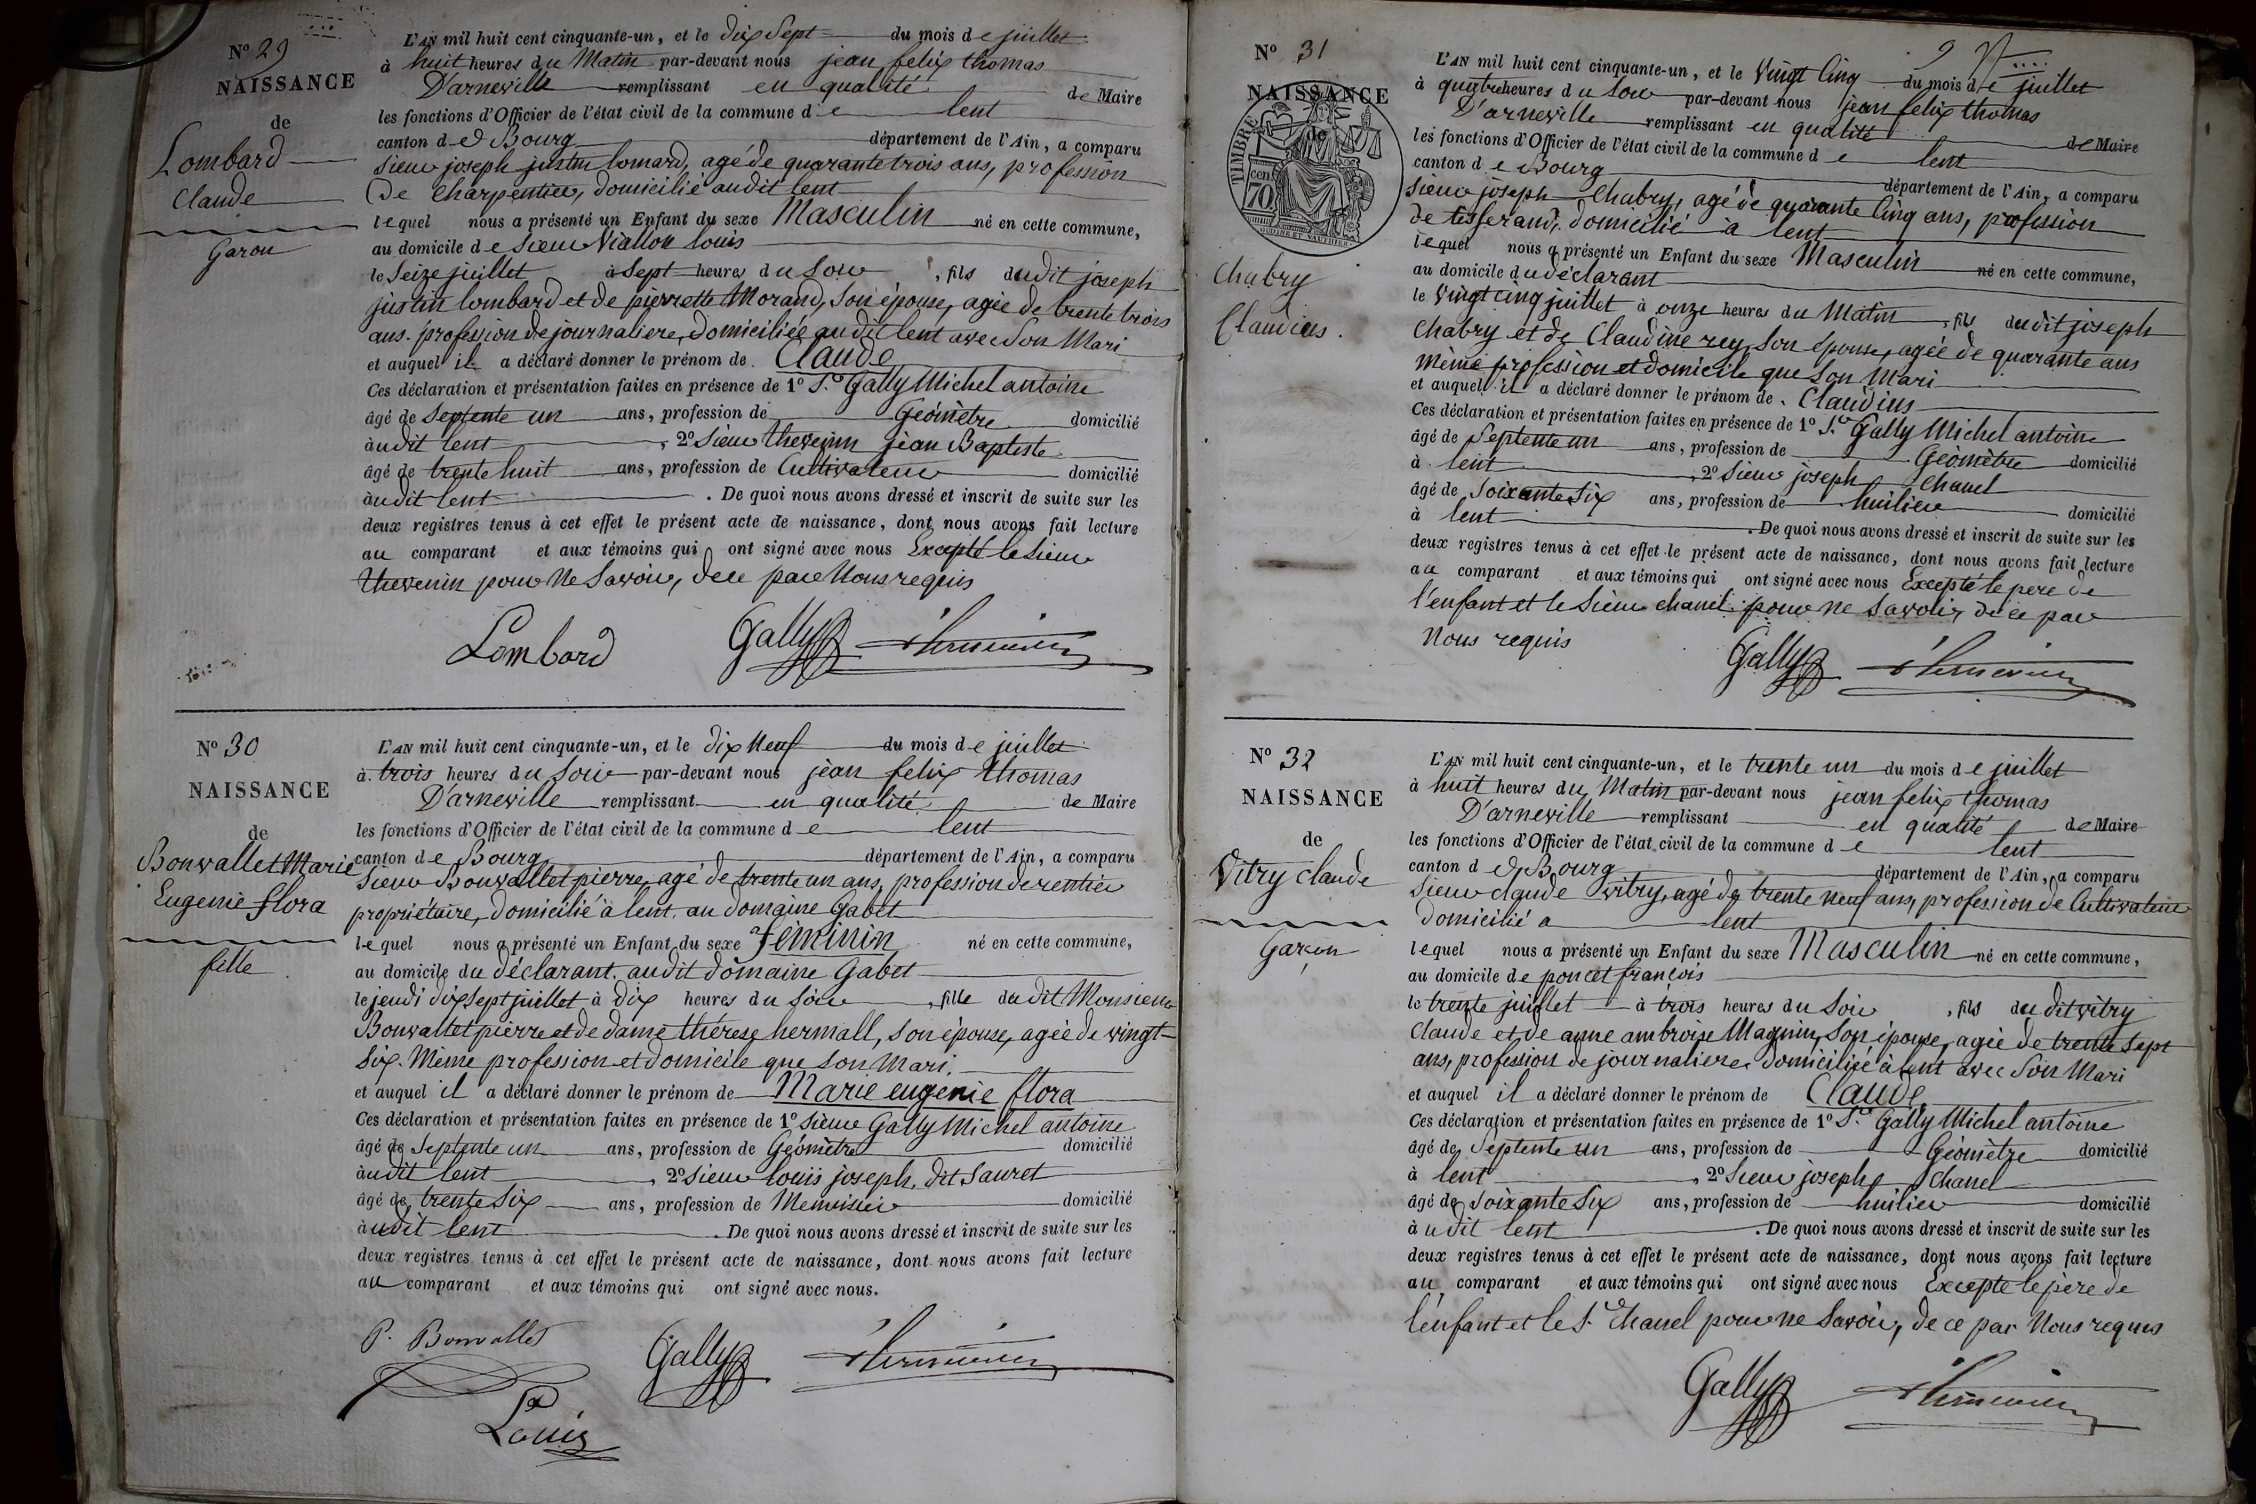 Nº 29
NAISSANCE
de
Lombard
Claude
Garon
L'AN mil huit cent cinquante-un, et le dix Sept du mois de juillet
à huit heures du Matin par-devant nous jean felix thomas
D'arneville remplissant en qualité de Maire
les fonctions d'Officier de l'état civil de la commune de lent
canton de Bourg département de l'Ain, a comparu
Sieur joseph justin lomard, agé de quarante trois ans, profession
De Charpentier, domicilié audit lent
lequel nous a présenté un Enfant du sexe Masculin né en cette commune,
au domicile de Sieur Viallon louis
le Seize juillet à Sept heures du Soir, fils dudit joseph
justin lombard et de pierrette Morand, Son épouse, agée de trente trois
ans. profession de journaliere, domiciliée audit lent avec Son Mari
et auquel il a déclaré donner le prénom de Claude
Ces déclaration et présentation faites en présence de 1º S.r Gally Michel antoine
âgé de Septente un ans, profession de Géomètre domicilié
àudit lent, 2º Sieur thevenin jean Baptiste
âgé de trente huit ans, profession de Cultivateur domicilié
àudit lent. De quoi nous avons dressé et inscrit de suite sur les
deux registres tenus à cet effet le présent acte de naissance, dont nous avons fait lecture
au comparant et aux témoins qui ont signé avec nous Excepté le Sieur
thevenin pour Ne Savoir, de ce par Nous requis
Lombard Gally
Nº 30
NAISSANCE
de
Bonvallet Marie
Eugenie flora
fille
L'AN mil huit cent cinquante-un, et le dix Neuf du mois de juillet
à trois heures du Soir par-devant nous jean felix thomas
D'arneville remplissant en qualité de Maire
les fonctions d'Officier de l'état civil de la commune de lent
canton de Bourg département de l'Ain, a comparu
Sieur Bonvallet pierre, agé de trente un ans, profession de rentier
propriétaire, domicilié à lent, au domaine Gabet
lequel nous a présenté un Enfant du sexe feminin né en cette commune,
au domicile du déclarant, audit domaine Gabet
le jeudi dix Sept juillet à Dix heures du Soir, fille du dit Monsieur
Bonvallet pierre et de dame thérese hermall, Son épouse, agée de vingt-
Six. Même profession et domicile que Son Mari.
et auquel il a déclaré donner le prénom de Marie eugenie flora
Ces déclaration et présentation faites en présence de 1º Sieur Gally Michel antoine
âgé de Septente un ans, profession de Géomètre domicilié
àudit lent, 2º Sieur louis joseph, dit Sauret
âgé de trente Six ans, profession de Menuisier domicilié
àudit lent. De quoi nous avons dressé et inscrit de suite sur les
deux registres tenus à cet effet le présent acte de naissance, dont nous avons fait lecture
au comparant et aux témoins qui ont signé avec nous.
P. Bonvallet Gally
Louis
Nº 31
NAISSANCE
de
TIMBRE
cen. 70
Chabry
Claudius.
L'AN mil huit cent cinquante-un, et le Vingt Cinq du mois de juillet
à quatre heures du Soir par-devant nous jean felix thomas
D'arneville remplissant en qualité de Maire
les fonctions d'Officier de l'état civil de la commune de lent
canton de Bourg département de l'Ain, a comparu
Sieur joseph Chabry, agé de quarante Cinq ans, profession
de tisserand, domicilié à lent
lequel nous a présenté un Enfant du sexe Masculin né en cette commune,
au domicile du déclarant
le Vingt cinq juillet à onze heures du Matin, fils du dit joseph
Chabry et de Claudine rey, Son épouse, agée de quarante ans
même profession et domicile que Son Mari
et auquel il a déclaré donner le prénom de Claudius
Ces déclaration et présentation faites en présence de 1º S.r Gally Michel antoine
âgé de Septente un ans, profession de Géomètre domicilié
à lent, 2º Sieur joseph Chanel
âgé de Soixante Six ans, profession de huilier domicilié
à lent. De quoi nous avons dressé et inscrit de suite sur les
deux registres tenus à cet effet le présent acte de naissance, dont nous avons fait lecture
au comparant et aux témoins qui ont signé avec nous Excepté le pere de
l'enfant et le Sieur chanel pour ne Savoir, de ce par
Nous requis
Gally
Nº 32
NAISSANCE
de
Vitry claude
Garçon
L'AN mil huit cent cinquante-un, et le trente un du mois de juillet
à huit heures du Matin par-devant nous jean felix thomas
D'arneville remplissant en qualité de Maire
les fonctions d'Officier de l'état civil de la commune de lent
canton de Bourg département de l'Ain, a comparu
Sieur claude vitry, agé de trente neuf ans, profession de Cultivateur
domicilié a lent
lequel nous a présenté un Enfant du sexe Masculin né en cette commune,
au domicile de poncet françois
le trente juillet à trois heures du Soir, fils du dit vitry
Claude et de anne ambroise Magnin, Son épouse, agée de trente Sept
ans, profession de journaliere, domiciliée à lent avec Son Mari
et auquel il a déclaré donner le prénom de Claude
Ces déclaration et présentation faites en présence de 1º S.r Gally Michel antoine
âgé de Septente un ans, profession de Géomètre domicilié
à lent, 2º Sieur joseph Chanel
âgé de Soixante Six ans, profession de huilier domicilié
à udit lent. De quoi nous avons dressé et inscrit de suite sur les
deux registres tenus à cet effet le présent acte de naissance, dont nous avons fait lecture
au comparant et aux témoins qui ont signé avec nous Excepté le père de
l'enfant et le S.r Chanel pour ne Savoir, de ce par Nous requis
Gally